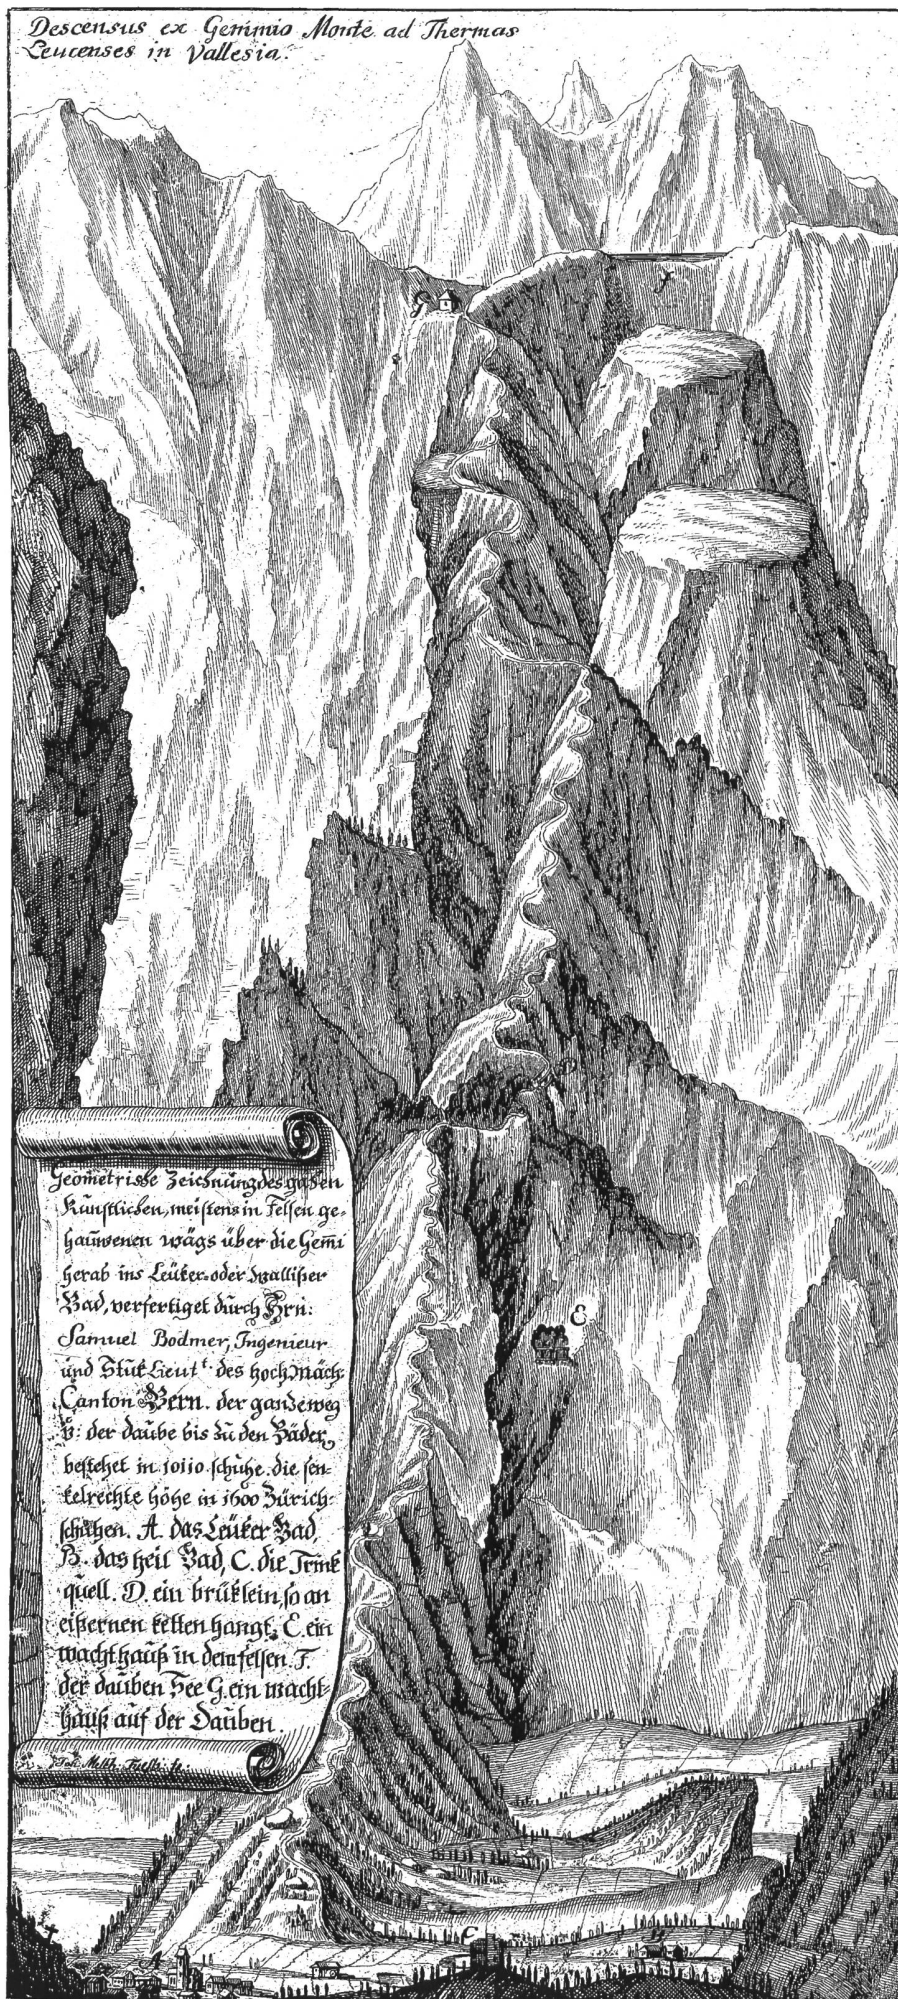 Descensus ex Gemmio Monte ad Thermas
Leucenses in Vallesia.
F
G
Geometrische Zeichnüng des gantzen
künstlichen, meistens in Felsen ge-
haüwenen wägs über die Gemi
herab ins Leüker- oder Walliser
Bad, verfertiget dürch Hrn:
Samuel Bodmer, Ingenieur
und Stük Lieut.t des hoch Mäch:
Canton Bern. der ganze weg
v: der daübe bis zü den Bäder,
bestehet in 10110 schühe. die sen-
kelrechte höhe in 1600 Zürich-
schühen. A. das Leüker Bad,
B. das heil Bad, C. die Trink
quell. D. ein brüklein, so an
eißernen ketten hangt. E. ein
wacht haüß in dem felsen F.
der daüben See G. ein wacht-
haüß auf der Daüben.
Joh. Melch. Füeßli fe.
D
E
A
C
B